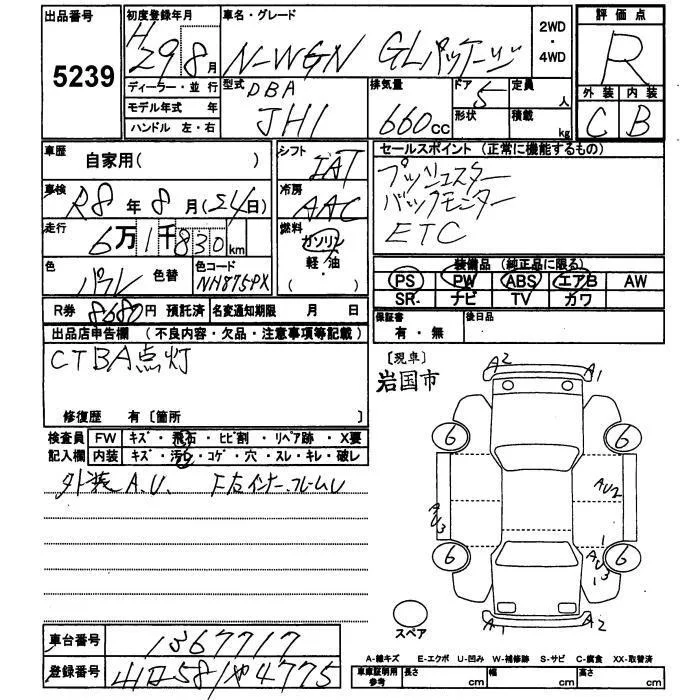 出品番号 5239
初度登録年月 H29 8月
ディーラー・並行
モデル年式 年
ハンドル 左・右
車名・グレード N-WGN GLパッケージ
2WD・4WD
評価点 R
外装 C 内装 B
型式 DBA JH1
排気量 660cc
ドア 5 形状
定員 人
積載 kg
車歴 自家用( )
車検 R8年8月(24日)
走行 6万1千830km
色 パール 色替
色コード NH875PX
シフト IAT
冷房 AAC
燃料 ガソリン 軽・油 ( )
セールスポイント (正常に機能するもの)
プッシュスター
バックモニター
ETC
装備品 (純正品に限る)
PS PW ABS エアB AW
SR ナビ TV カワ
R券 8680円 預託済 名変通知期限 月 日
保証書 有・無
後日品
出品店申告欄 (不良内容・欠品・注意事項等記載)
CTBA点灯
修復歴 有〔箇所 〕
検査員 FW キズ・飛石・ヒビ割・リペア跡・X要
記入欄 内装 キズ・汚レ・コゲ・穴・スレ・キレ・破レ
外装A.U. F左インナーフレームU
〔現車〕
岩国市
A2 A1
6 6
AU2
AU3
1
AU3
1
6 6
A1 A2
スペア
車台番号 1367717
登録番号 581 や 4775
A-線キズ E-エクボ U-凹み W-補修跡 S-サビ C-腐食 XX-取替済
車庫証明用参考 長さ cm 幅 cm 高さ cm